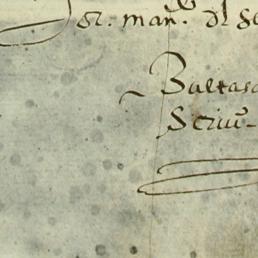 sr. man. dl
Baltasa
Scriu